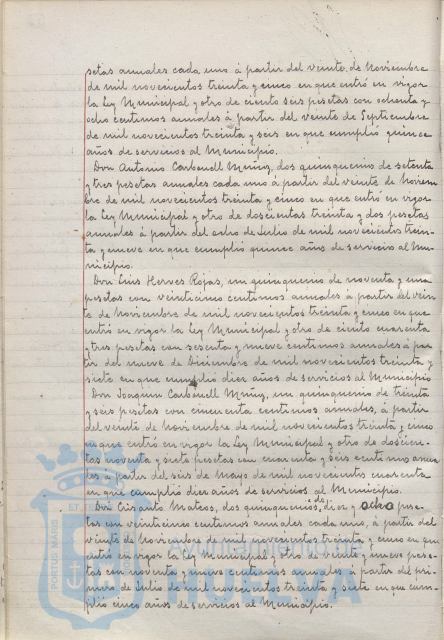 setas anuales cada uno á partir del veinte de Noviembre
de mil novecientos treinta y cinco en que entró en vigor
la Ley Municipal y otro de ciento seis pesetas con ochenta y
ocho centimos anuales á partir del veinte de Septiembre
de mil novecientos treinta y seis en que cumplió quince
años de servicios al Municipio.
Don Antonio Carbonell Muñoz, dos quinquenios de setenta
y tres pesetas anuales cada uno á partir del veinte de Noviem
bre de mil novecientos treinta y cinco en que entro en vigor
la Ley Municipal y otro de doscientas treinta y dos pesetas
anuales á partir del ocho de Julio de mil novecientos trein-
ta y nueve en que cumplió quince años de servicio al Mu-
nicipio.
Don Luis Herves Rojas, un quinquenio de noventa y una
pesetas con veinticinco centimos anuales á partir del vein
te de Noviembre de mil novecientos treinta y cinco en que
entró en vigor la Ley Municipal y otro de ciento cuarenta
y tres pesetas con sesenta y nueve centimos anuales á par
tir del nueve de Diciembre de mil novecientos treinta y
siete en que cumplió diez años de servicios al Municipio
Don Joaquin Carbonell Muñoz, un quinquenio de treinta
y seis pesetas con cincuenta centimos anuales, á partir
del veinte de Noviembre de mil novecientos treinta y cinco
en que entró en vigor la Ley Municipal y otro de doscien-
tas noventa y siete pesetas con cuarenta y seis centimos anua
les á partir del seis de Mayo de mil novecientos cuarenta
en que cumplió diez años de servicios al Municipio.
Don Crisanto Mateos, dos quinquenios de diez y ocho pese-
tas con veinticinco centimos anuales cada uno, á partir del
veinte de Noviembre de mil novecientos treinta y cinco en que
entró en vigor la Ley Municipal y otro de veinte y nueve pese-
tas con noventa y nueve centimos anuales á partir del pri-
mero de Julio de mil novecientos treinta y siete en que cum-
plió cinco años de servicios al Municipio.
PORTUS MARIS ET
HUELVA